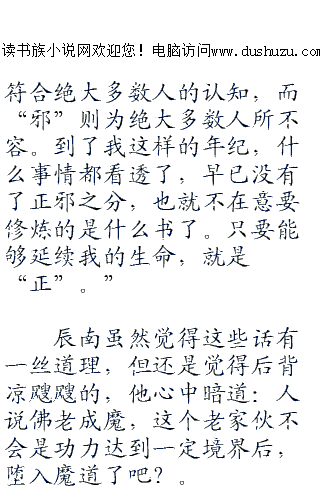 读书族小说网欢迎您！电脑访问www.dushuzu.com
符合绝大多数人的认知，而
“邪”则为绝大多数人所不
容。到了我这样的年纪，什
么事情都看透了，早已没有
了正邪之分，也就不在意要
修炼的是什么书了。只要能
够延续我的生命，就是
“正”。”
辰南虽然觉得这些话有
一丝道理，但还是觉得后背
凉飕飕的，他心中暗道：人
说佛老成魔，这个老家伙不
会是功力达到一定境界后，
堕入魔道了吧？。